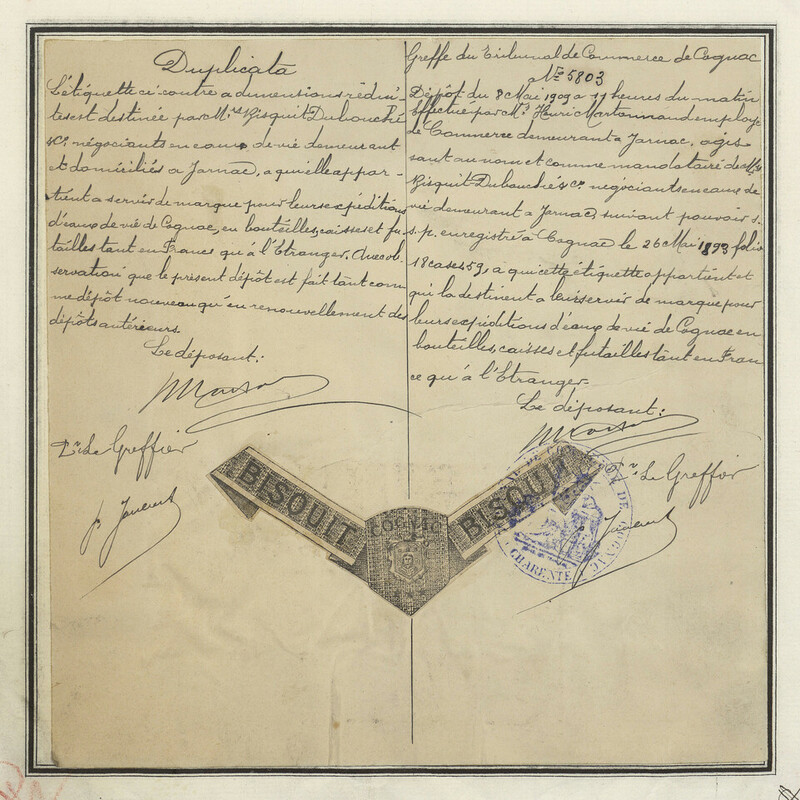 Duplicata
L'étiquette ci-contre a dimensions rédui-
tes est destinée par Mrs Bisquit Dubouché
& Co. négociants en eaux de vie demeurant
et domiciliés a Jarnac, a qui elle appar-
tient a servir de marque pour leurs expéditions
d'eaux de vie de Cognac, en bouteilles, caisses et fu-
tailles tant en France qu'à l'Etranger. Avec ob-
servation que le présent dépôt est fait tant com-
me dépôt nouveau qu'en renouvellement des
dépôts antérieurs.
Le déposant:
Le Greffier
Greffe du Tribunal de Commerce de Cognac
No 5803
Dépôt du 8 Mai 1909 a 11 heures du matin
Effectué par Mr Henri Martonnaud employé
de Commerce demeurant a Jarnac, agis-
sant au nom et comme mandataire de Mrs
Bisquit-Dubouché & Co. négociants en eaux de
vie demeurant a Jarnac, suivant pouvoir s.
s. p. enregistré à Cognac le 26 Mai 1893 folio
18 case 459, a qui cette étiquette appartient et
qui la destinent a leur servir de marque pour
leurs expéditions d'eaux de vie de Cognac en
bouteilles, caisses et futailles tant en Fran
ce qu'à l'Etranger.
Le déposant:
Le Greffier
BISQUIT
COGNAC
BISQUIT
COGNAC
CHARENTE